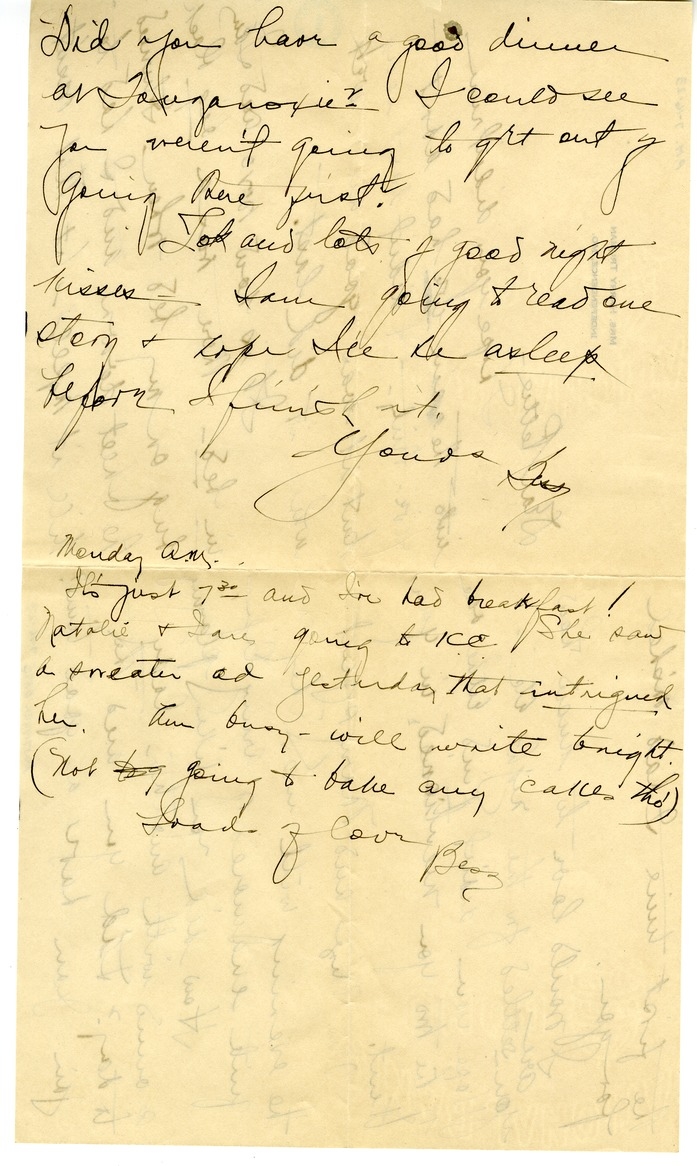 Did you have a good dinner
at Tonganoxie? I could see
you weren't going to get out of
going there first.
and lots of good night
kisses — I am going to read one
story & hope I'll be asleep
before I finish it.
Yours Bess
Monday a.m.
It's just 7 30 and I've had breakfast!
Natalie & I are going to KC. She saw
a sweater ad yesterday that intrigued
her. Am busy - will write tonight.
(Not going to bake any cakes tho')
Loads of love
Bess